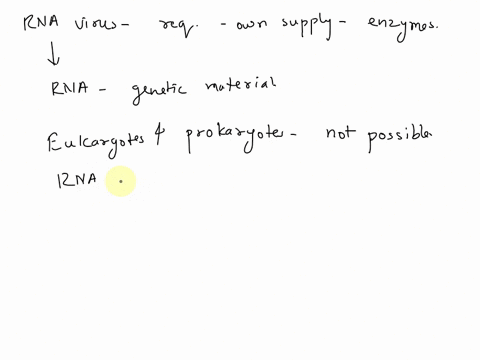 RNA virus - req. - own supply - enzymes.
RNA - genetic material
Eukaryotes & prokaryotes - not possible
RNA